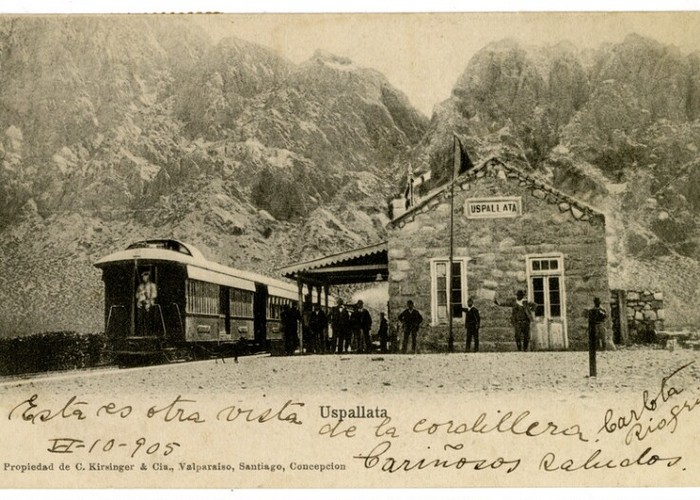 USPALLATA
Uspallata
Esta es otra vista de la cordillera.
Carlota
VI-10-905
Cariñosos saludos.
Propiedad de C. Kirsinger & Cia., Valparaiso, Santiago, Concepcion